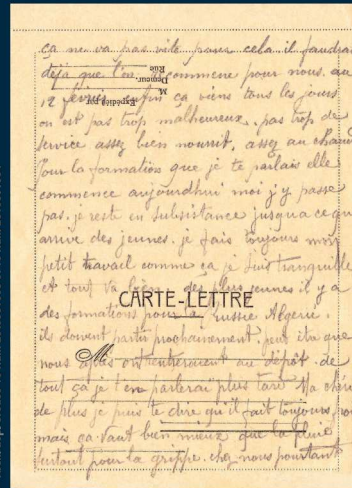 ça ne va pas vite pour cela il faudrai
déjà que l'on commence pour nous. au
M
Demeur.
Rue
Expédiée par
12 février enfin ça viens tous les jours
on est pas trop malheureux, pas trop de
service assez bien nourrit, assez au chaud
Pour la formation que je te parlais elle
commence aujourdhui moi j'y passe
pas. je reste en subsistance jusqua ce que
arrive des jeunes. je fais toujours mon
petit travail comme ça je suis tranquille
et tout va bien des plus jeunes il y a
des formations pour la Russie Algerie.
CARTE-LETTRE
ils doivent partir prochainement. peut être que
M
nous après ont au dépôt. de
tout ça je t'en parlerai plus tard Ma chérie
de plus je puis te dire qu'il fait toujours
mais ça vaut bien mieux que la pluie
surtout pour la grippe. chez nous pourtant